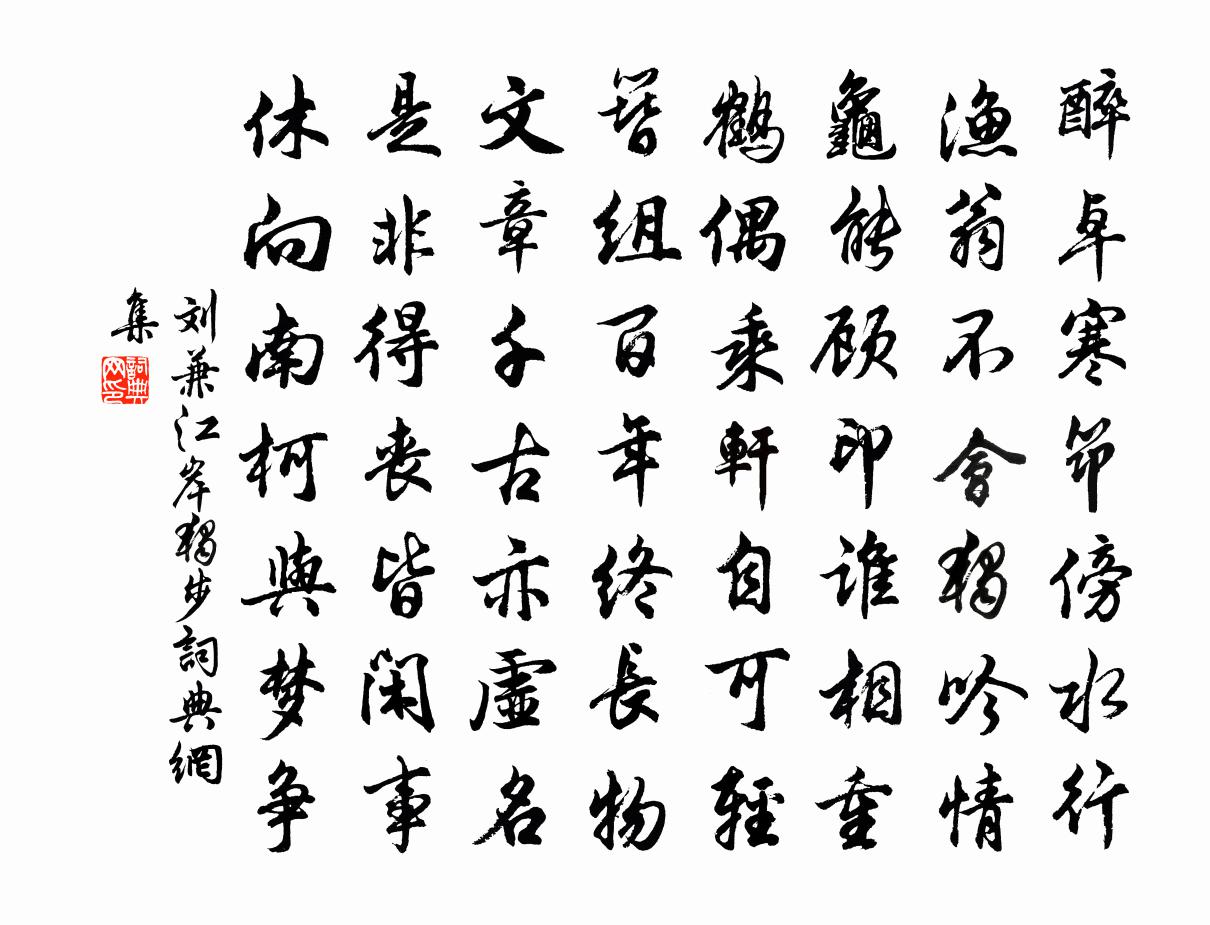 醉卓寒筇傍水行
漁翁不會獨吟情
龜能顾印誰相重
鶴偶乘軒自可輕
簪組百年終長物
文章千古亦虛名
是非得喪皆閑事
休向南柯與梦爭
刘兼江岸獨步詞典網
集
詞典
网印